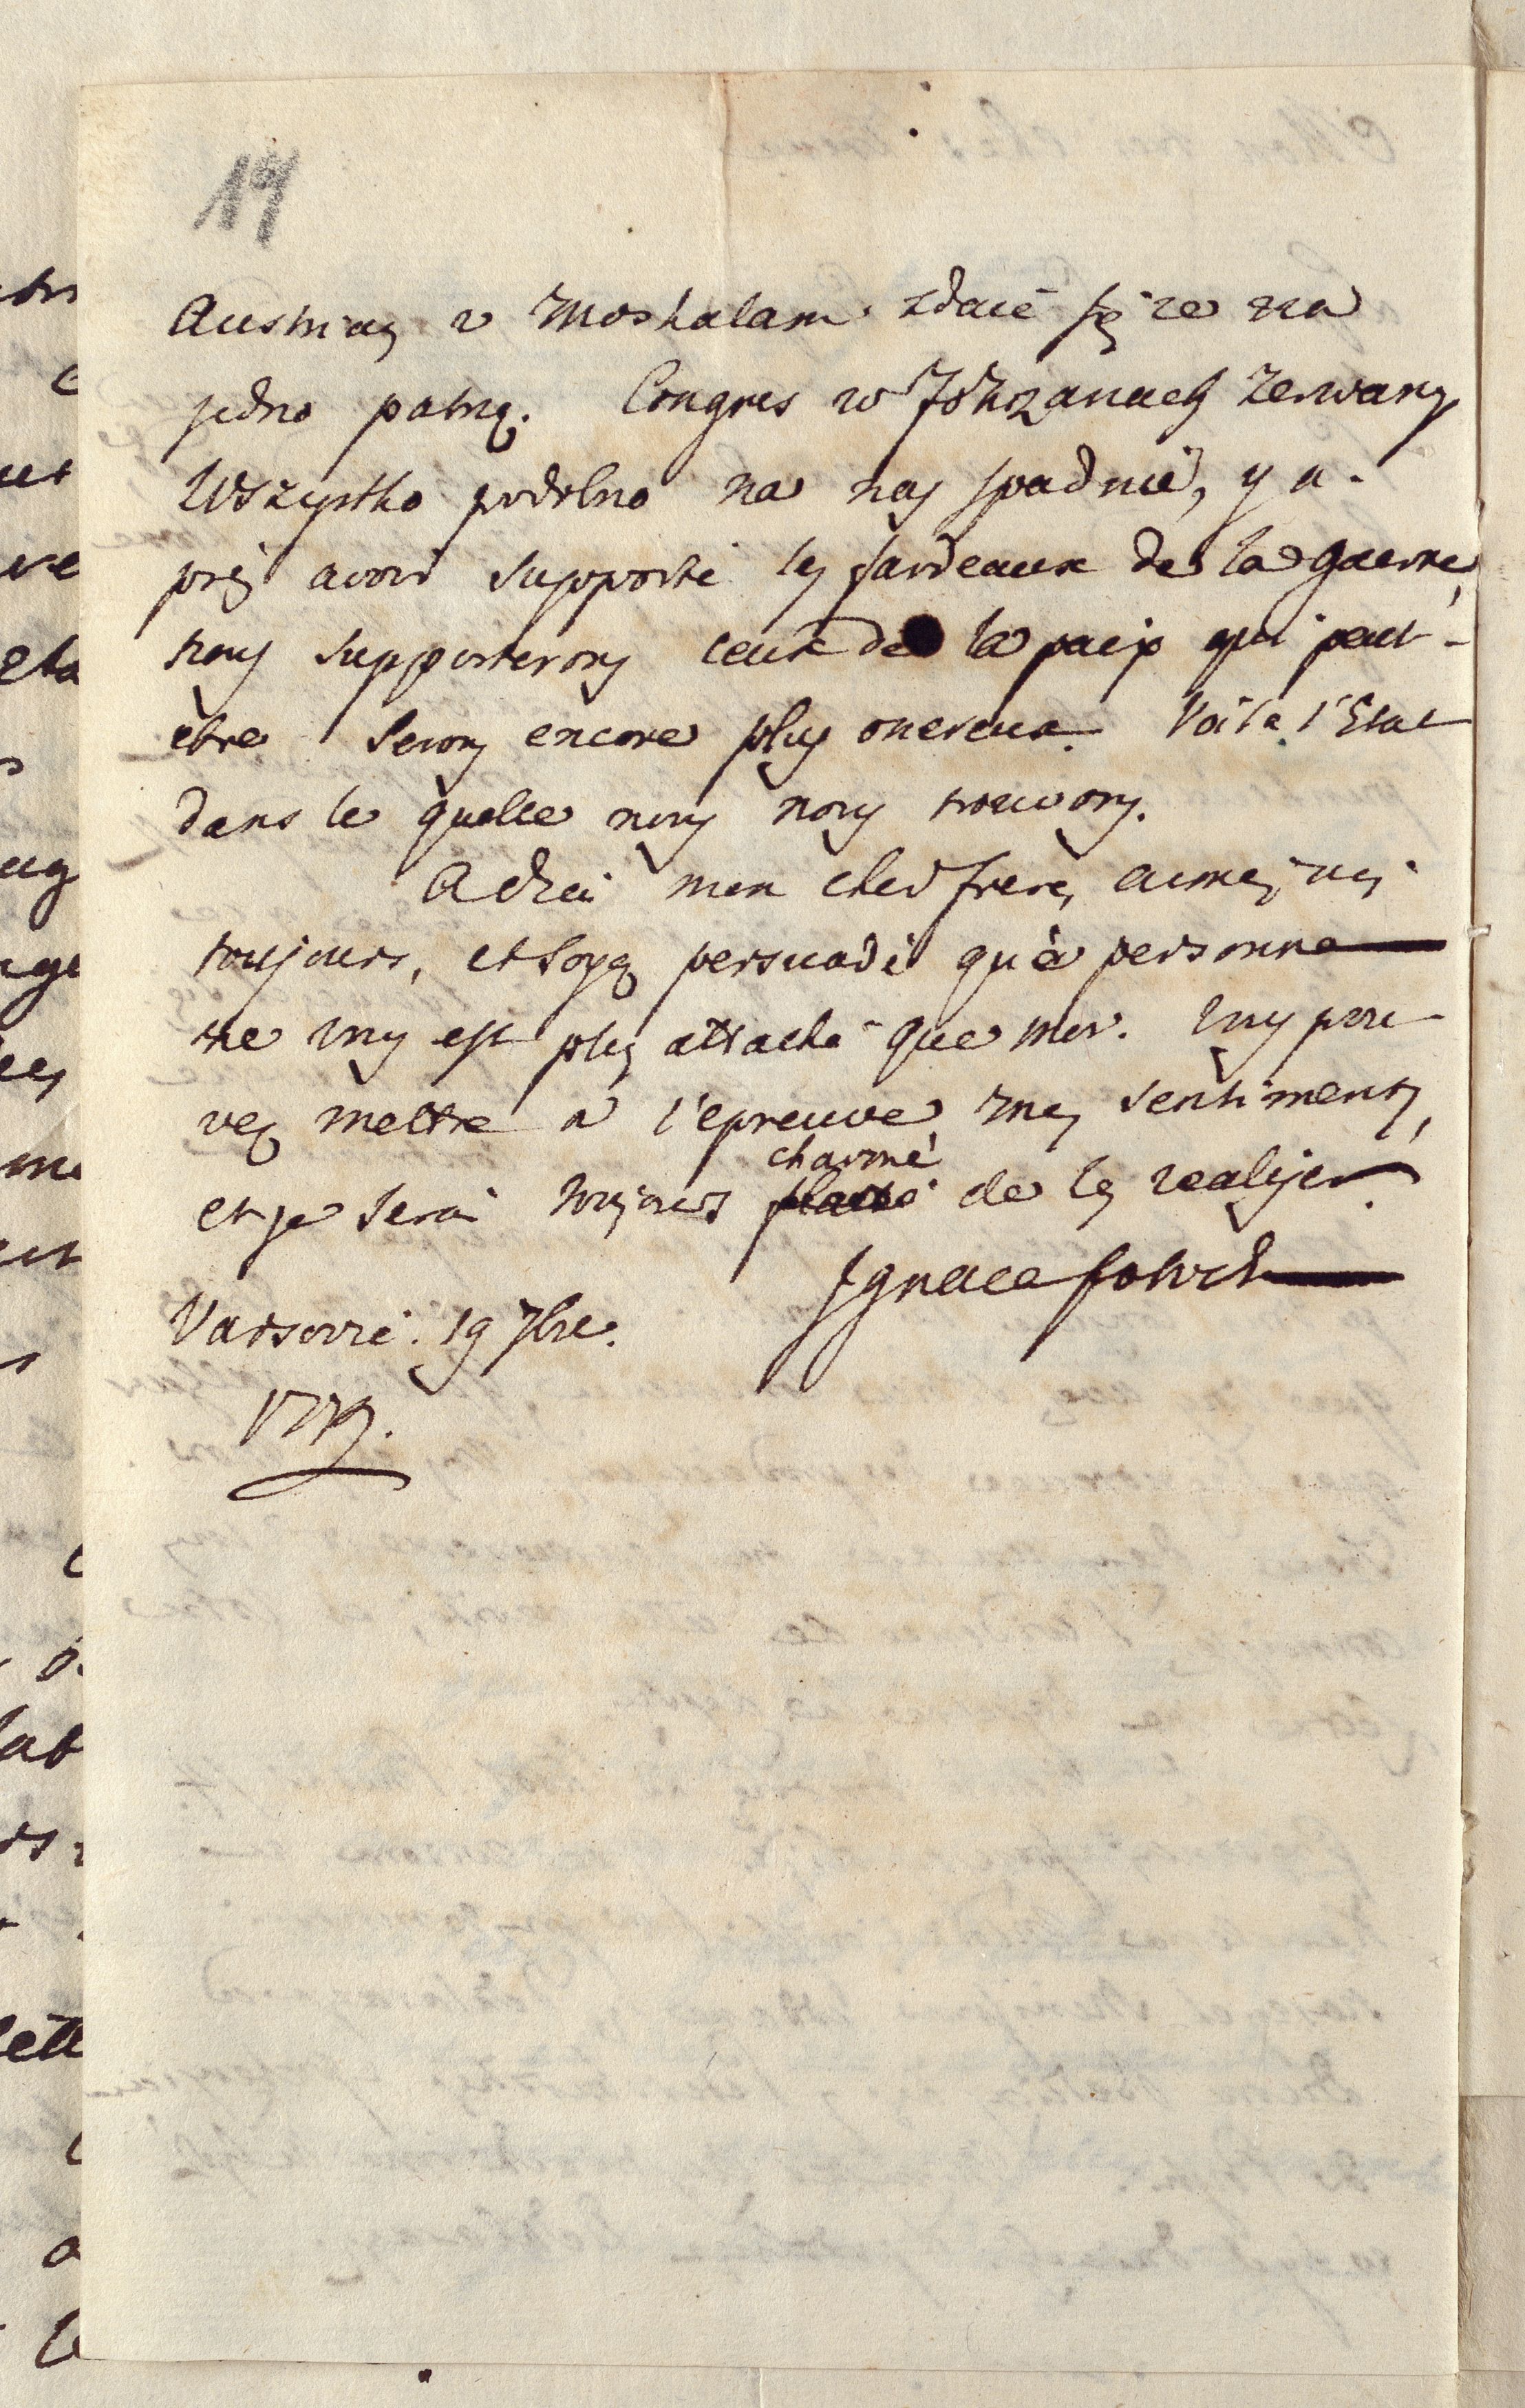 19
Austriacy z Moskalami zdaie się że na
jedno patrzą. Congres w Fokszanach zerwany
Wszystko podobno na nas spadnie, y a-
prés avoir supporté les fardeaux de la guerre,
nous supporterons ceux de la paix qui peut-
etre serons encore plus onereux. Voila l'Etat
dans le quelle nous nous trouvons.
Adieu mon cher frere, aimes moi
toujours, et soyez persuadé qu'à personne
ne vous est plus attaché que moi. Vous pou
vez mettre a l'epreuve mes sentiments,
charmé
et je serai toujours de les realiser.
Ignace Potocki
Varsovie. 19 7bre.